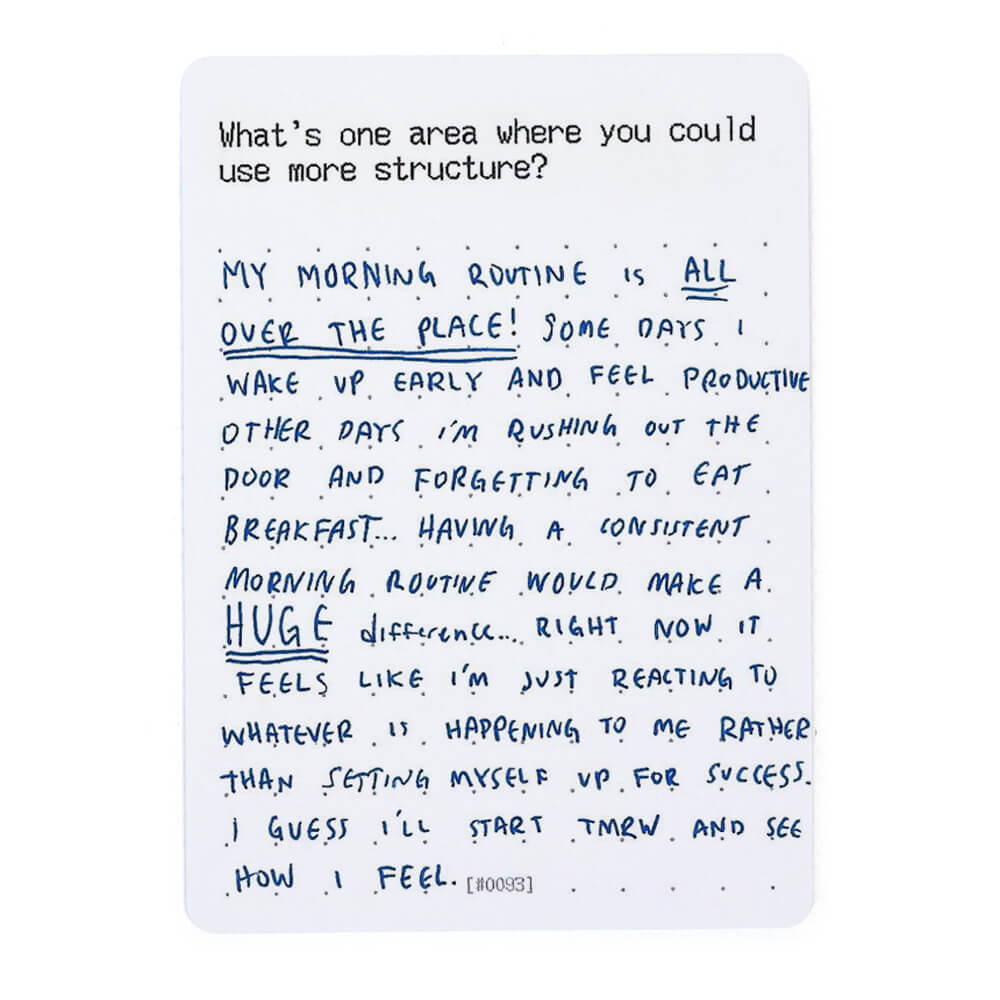 What's one area where you could
use more structure?
MY MORNING ROUTINE IS ALL
OVER THE PLACE! SOME DAYS I
WAKE UP EARLY AND FEEL PRODUCTIVE
OTHER DAYS I'M RUSHING OUT THE
DOOR AND FORGETTING TO EAT
BREAKFAST... HAVING A CONSISTENT
MORNING ROUTINE WOULD MAKE A
HUGE difference... RIGHT NOW IT
FEELS LIKE I'M JUST REACTING TO
WHATEVER IS HAPPENING TO ME RATHER
THAN SETTING MYSELF UP FOR SUCCESS.
I GUESS I'LL START TMRW AND SEE
HOW I FEEL. [#0093]